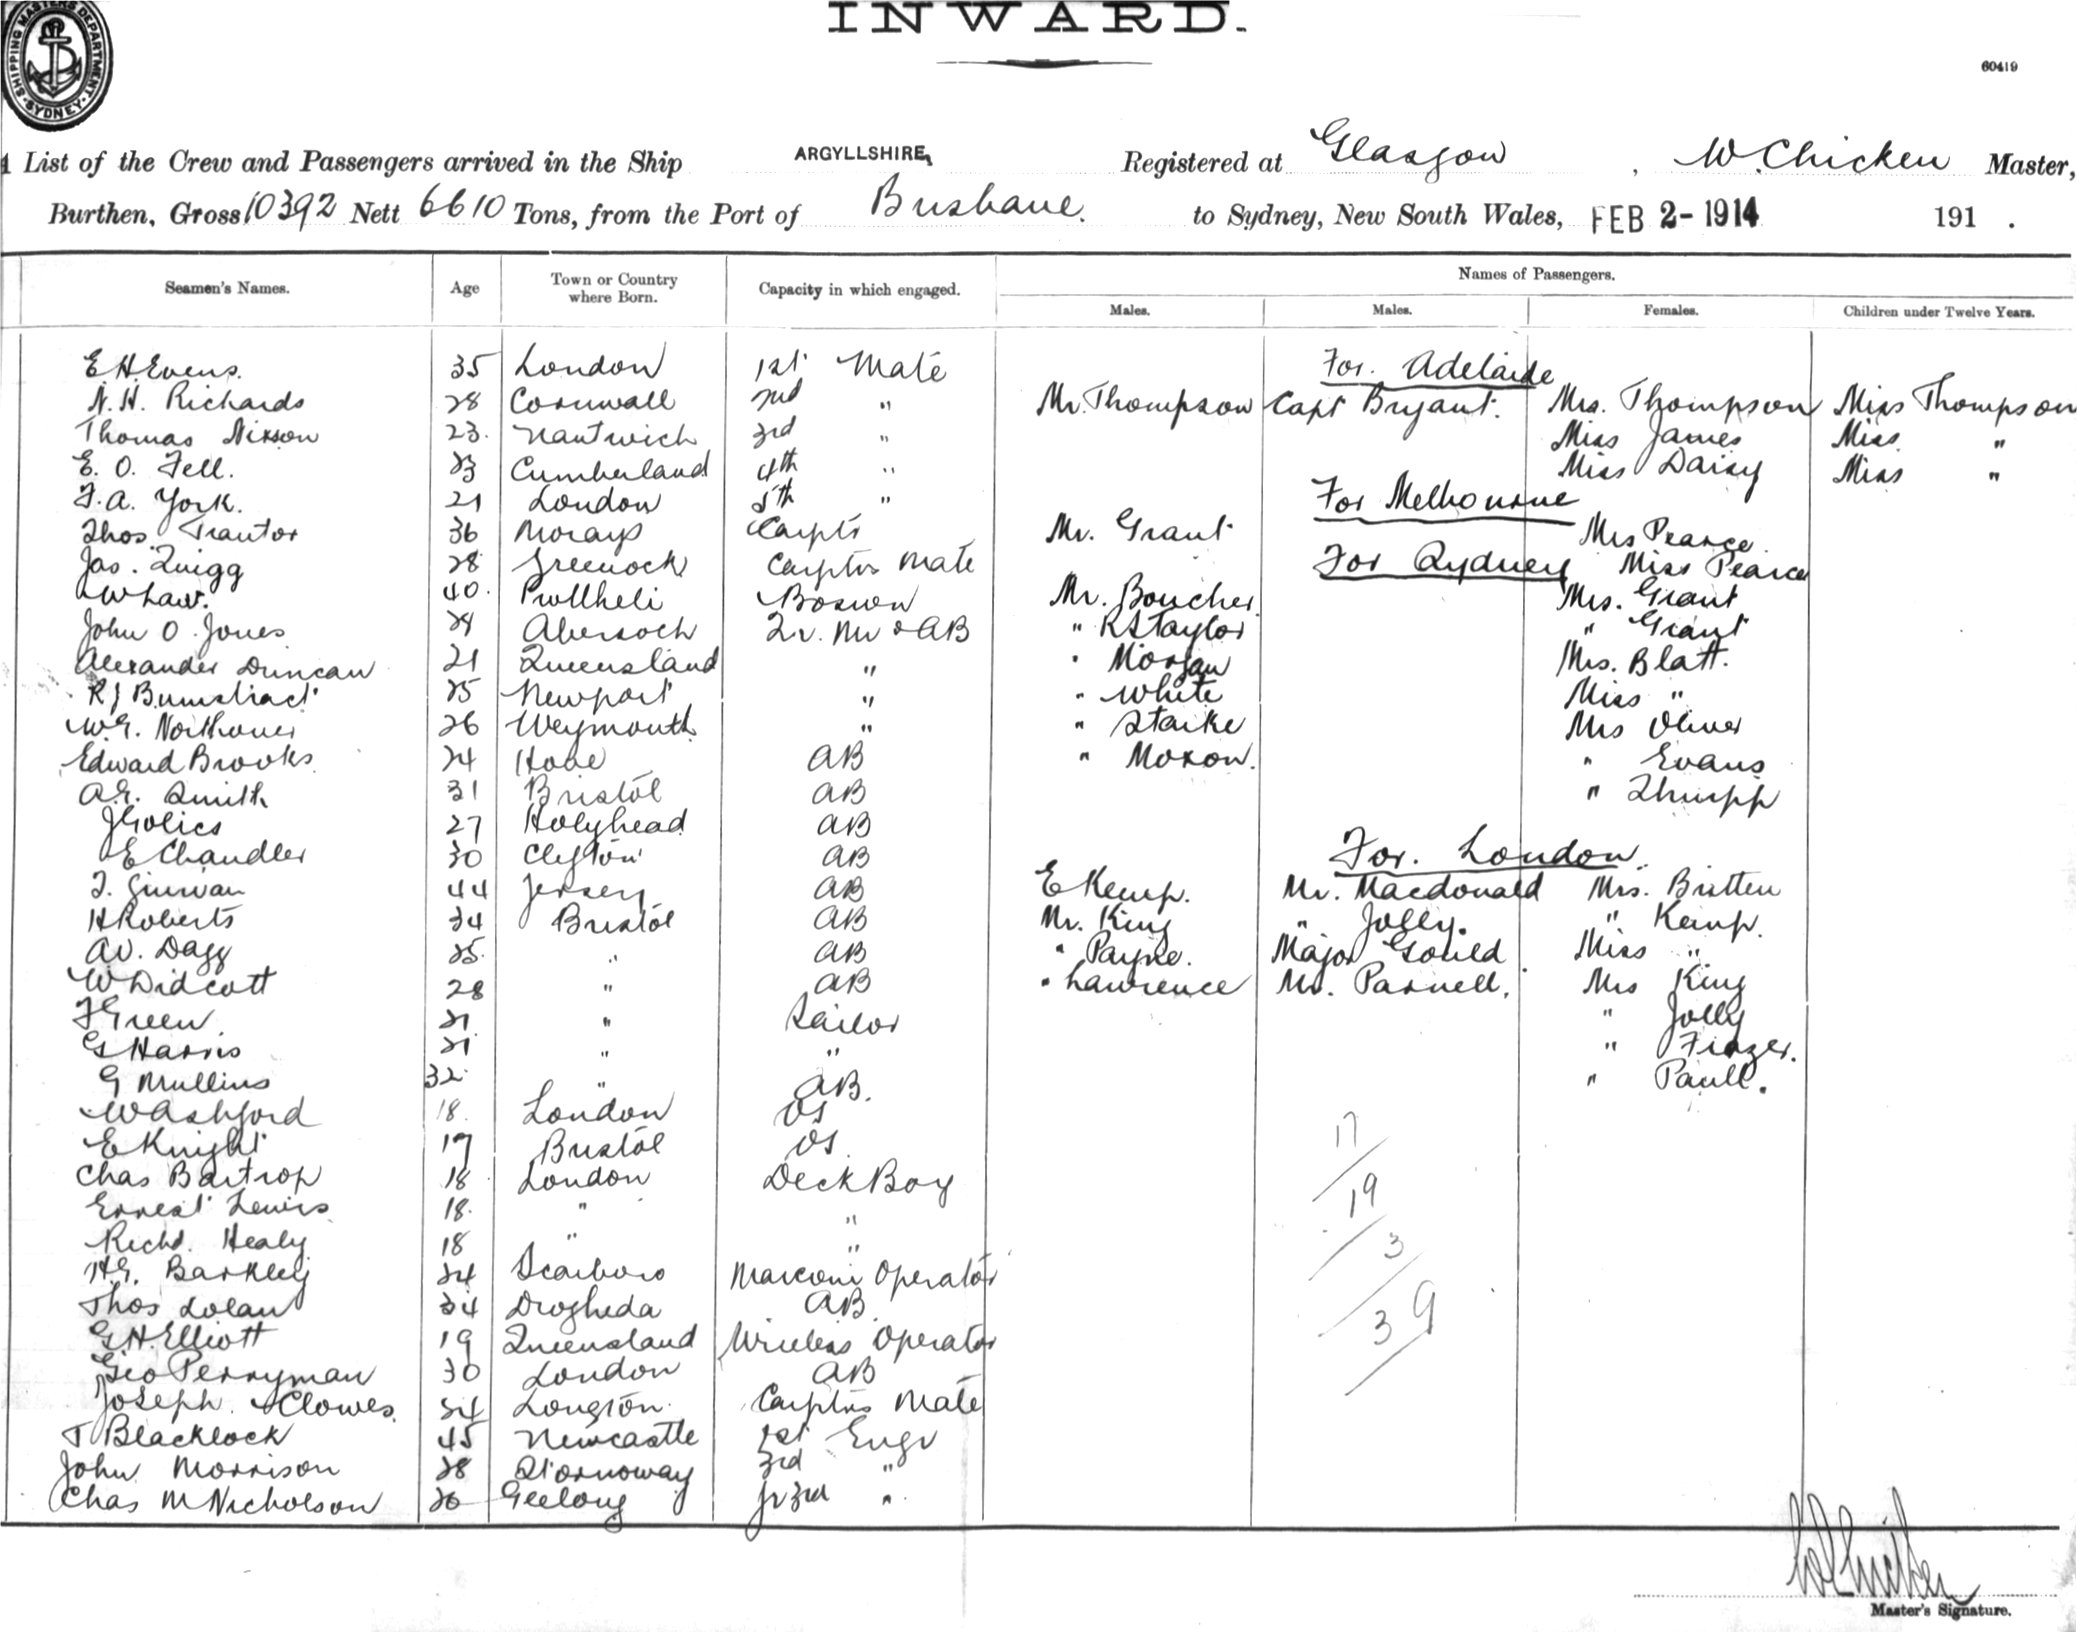 SHIPPING MASTERS DEPARTMENT · SYDNEY ·
INWARD.
60419
List of the Crew and Passengers arrived in the Ship ARGYLLSHIRE, Registered at Glasgow, W. Chicken Master,
Burthen, Gross 10392 Nett 6610 Tons, from the Port of Brisbane. to Sydney, New South Wales, FEB 2-1914 191 .
Seamen's Names. Age Town or Country where Born. Capacity in which engaged. Names of Passengers.
Males. Males. Females. Children under Twelve Years.
E H Evens. 35 London 1st Mate For. Adelaide
N. H. Richards 28 Cornwall 2nd " Mr. Thompson Capt Bryant. Mrs. Thompson Miss Thompson
Thomas Nixson 23. Nantwich 3rd " Miss James Miss "
E. O. Fell. 23 Cumberland 4th " Miss Daisy Miss "
F. A. York. 21 London 5th " For Melbourne
Thos. Trantor 36 Carptr Mr. Grant Mrs Pearce
Jas. Quigg 28 Greenock Carptrs Mate For Sydney Miss Pearce
W Law. 40. Pwllheli Boswn Mr. Boucher Mrs. Grant
John O. Jones 28 Abersoch Qr. Mr & AB " R S Taylor " Grant
Alexander Duncan 21 Queensland " " Morgan Mrs. Blatt.
R J 25 Newport " " White Miss "
W. G. Northover 26 Weymouth " " Starke Mrs Oliver
Edward Brooks 24 Hove AB " Moxon. " Evans
A. G. Smith 31 Bristol AB " Thrupp
27 Holyhead AB
E Chandler 30 Clifton AB For. London
44 Jersey AB E Kemp. Mr. Macdonald Mrs. Britten
H Roberts 34 Bristol AB Mr. King " Jolly. " Kemp.
A V. Dagg 25. " AB " Payne. Major Gould Miss "
W Didcott 28 " AB " Lawrence Mr. Parnell. Mrs King
F Green 21 " Sailor " Jolly
G Harris 21 " " " Frazer.
G Mullins 32 " AB. " Paull.
W Ashford 18. London OS
E Knight 19 Bristol OS
Chas Bartrop 18 London Deck Boy
Ernest Lewis 18. " "
Richd. Healy 18 " "
H. G. Barkley 24 Scarboro Marconi Operator
Thos Dolan 34 Drogheda AB
G. H. Elliott 19 Queensland Wireless Operator
Geo Perryman 30 London AB
Joseph Clowes 34 Longton Carptrs Mate
T Blacklock 45 Newcastle 1st Engr
John Morrison 28 Stornoway 3rd "
Chas M Nicholson 26 Geelong Jr 3rd "
17
19
3
39
W Chicken
Master's Signature.